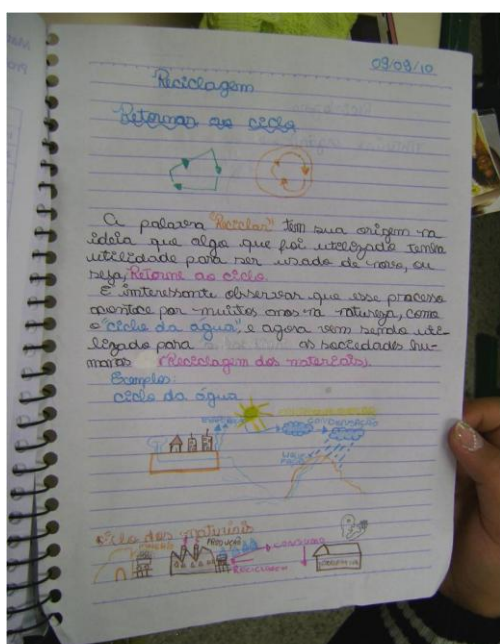 09/09/10
Reciclagem
Retornar ao ciclo
A palavra "Reciclar" tem sua origem na
ideia que algo que foi utilizado tenha
utilidade para ser usado de novo, ou
seja, Retorne ao ciclo.
É imteressante observar que esse processo
acontece por muitos anos na natureza, como
o "ciclo da água", e agora vem sendo uti-
lizado para as sociedades hu-
manas (Reciclagem dos materiais).
Exemplos:
ciclo da água
CONDENSAÇÃO
ciclo dos materiais
PRODUÇÃO
CONSUMO
RECICLAGEM